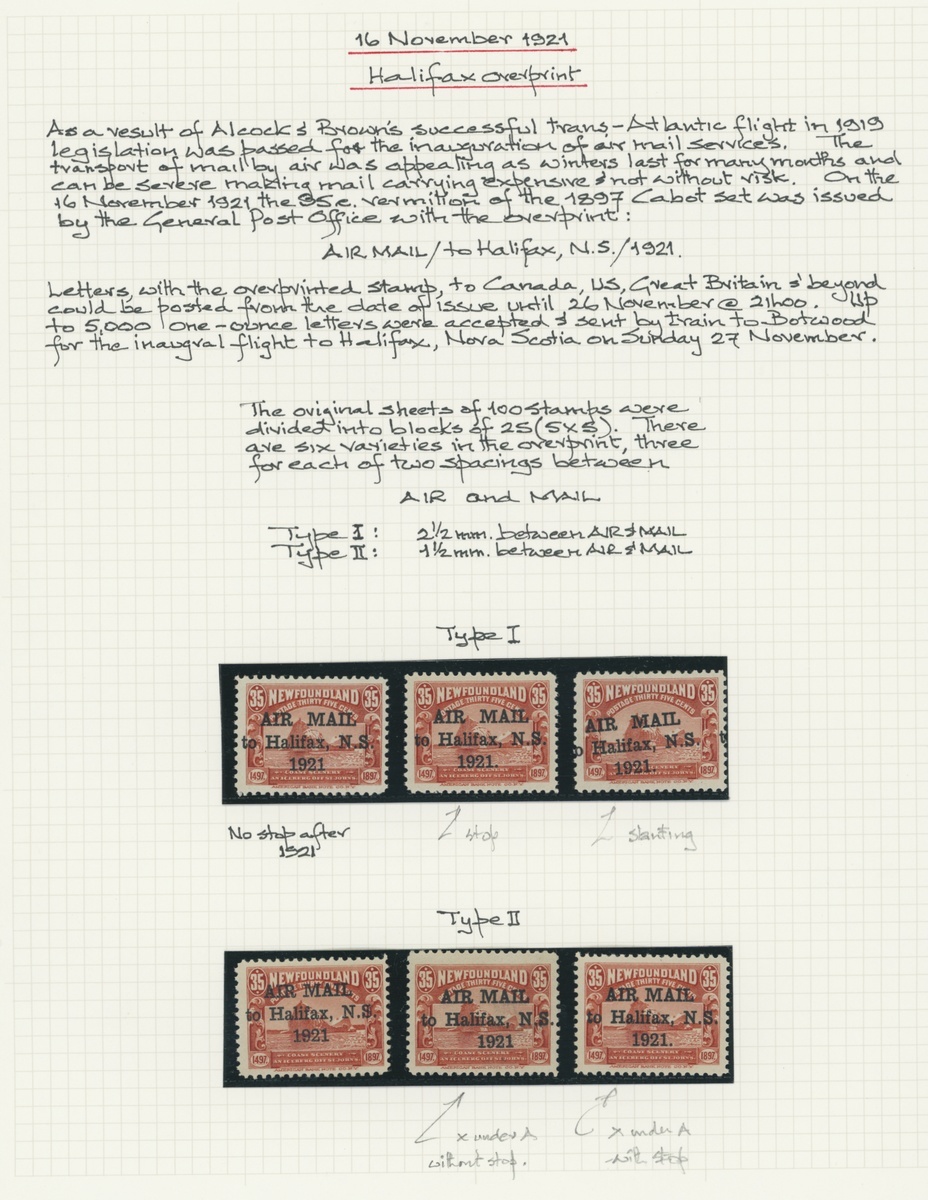 16 November 1921
Halifax overprint
As a result of Alcock & Brown's successful trans-Atlantic flight in 1919
legislation was passed for the inauguration of air mail services. The
transport of mail by air was appealing as winters last for many months and
can be severe making mail carrying expensive & not without risk. On the
16 November 1921 the 35c. vermilion of the 1897 Cabot set was issued
by the General Post Office with the overprint:
AIR MAIL/to Halifax, N.S./1921.
Letters, with the overprinted stamp, to Canada, US, Great Britain & beyond
could be posted from the date of issue until 26 November @ 21h00. Up
to 5,000 one-ounce letters were accepted & sent by train to Botwood
for the inaugral flight to Halifax, Nova Scotia on Sunday 27 November.
The original sheets of 100 stamps were
divided into blocks of 25 (5x5). There
are six varieties in the overprint, three
for each of two spacings between
AIR and MAIL
Type I: 2½mm. between AIR & MAIL
Type II: 1½mm. between AIR & MAIL
Type I
35 NEWFOUNDLAND 35
POSTAGE THIRTY FIVE CENTS
AIR MAIL
to Halifax, N.S.
1921
1497 COAST SCENERY 1897
AN ICEBERG OFF ST JOHNS
35 NEWFOUNDLAND 35
POSTAGE THIRTY FIVE CENTS
AIR MAIL
to Halifax, N.S.
1921.
1497 COAST SCENERY 1897
AN ICEBERG OFF ST JOHNS
35 NEWFOUNDLAND 35
POSTAGE THIRTY FIVE CENTS
AIR MAIL
to Halifax, N.S.
1921.
1497 COAST SCENERY 1897
AN ICEBERG OFF ST JOHNS
No stop after
1921
stop
slanting
Type II
35 NEWFOUNDLAND 35
AIR MAIL
to Halifax, N.S.
1921
1497 COAST SCENERY 1897
AN ICEBERG OFF ST JOHNS
35 NEWFOUNDLAND 35
POSTAGE THIRTY FIVE CENTS
AIR MAIL
to Halifax, N.S.
1921
1497 COAST SCENERY 1897
AN ICEBERG OFF ST JOHNS
35 NEWFOUNDLAND 35
POSTAGE THIRTY FIVE CENTS
AIR MAIL
to Halifax, N.S.
1921.
1497 COAST SCENERY 1897
AN ICEBERG OFF ST JOHNS
x under A
without stop.
x under A
with stop